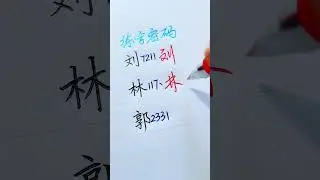 练字密码
刘7211刘
林117、林
郭2331
郭